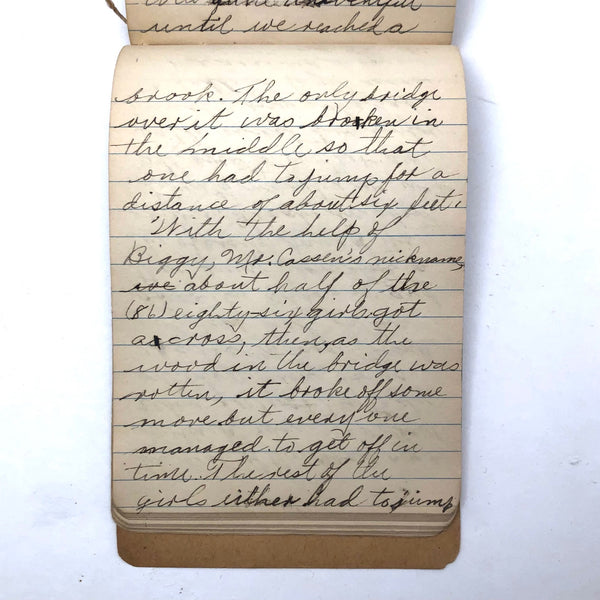 until we reached a
brook. The only bridge
over it was broken in
the middle so that
one had to jump for a
distance of about six feet.
With the help of
Biggy, Mr. Cassen's nickname,
we about half of the
(86) eighty-six girls got
across, then, as the
wood in the bridge was
rotten, it broke off some
more but every one
managed to get off in
time. The rest of the
girls either had to jump